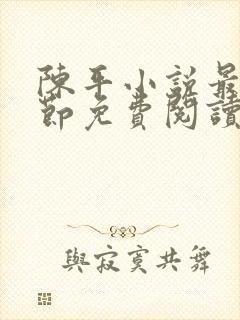 陳平小說最
節免費閱讀
與寂寞共舞